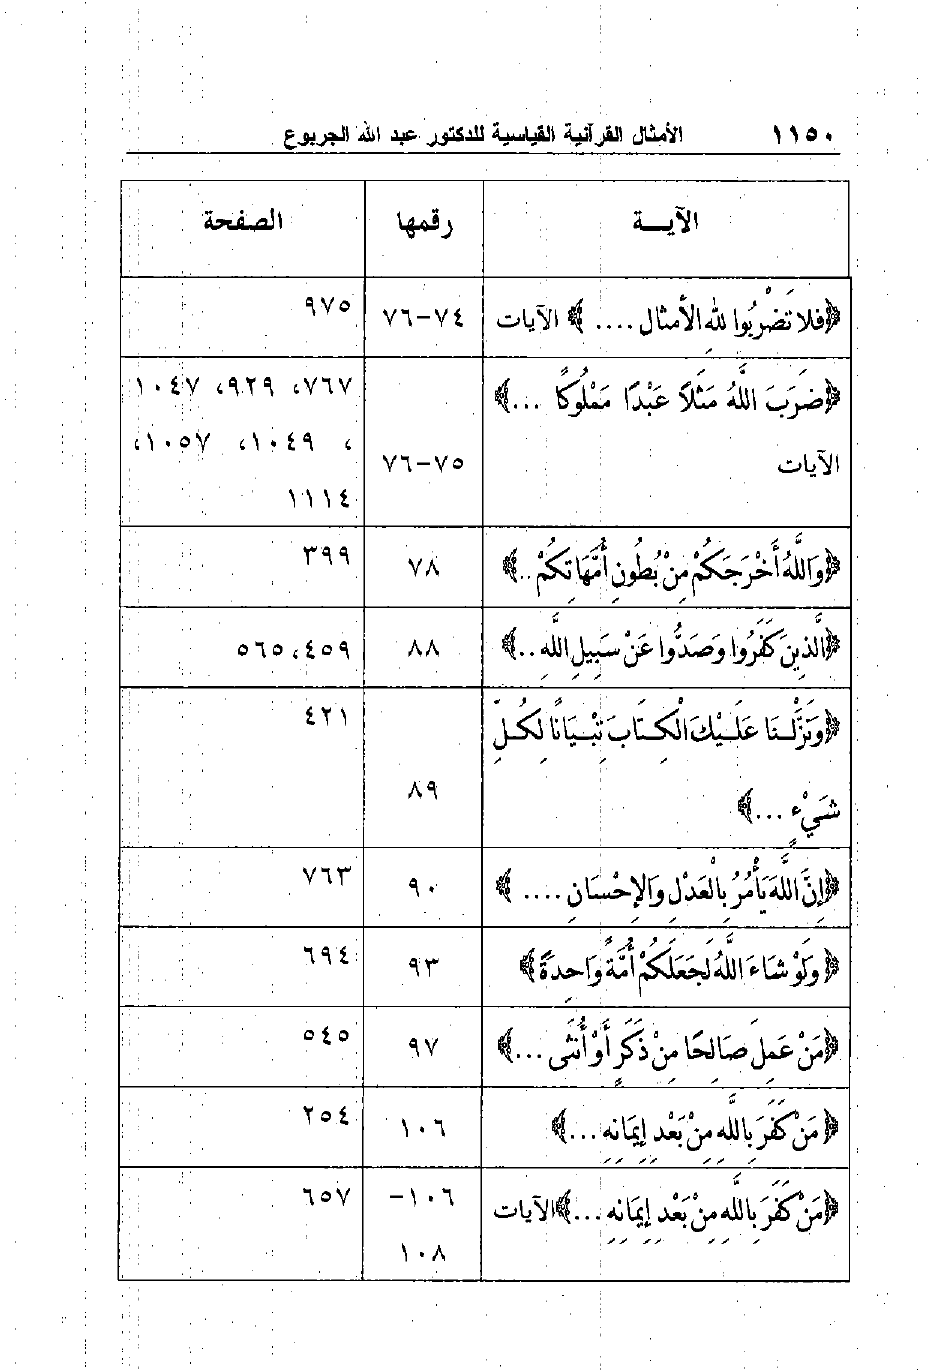 ١١٥٠ الأمثال القرآنية القياسية للدكتور عبد الله الجربوع
الآيـــة رقمها الصفحة
﴿فلا تَضْرِبُوا لله الأمثال ....﴾ الآيات ٧٤-٧٦ ٩٧٥
﴿ضَرَبَ اللَّهُ مَثَلًا عَبْدًا مَمْلُوكًا ...﴾ ٧٦٧، ٩٢٩، ١٠٤٧
الآيات ٧٥-٧٦ ، ١٠٤٩، ١٠٥٧،
١١١٤
﴿وَاللَّهُ أَخْرَجَكُمْ مِنْ بُطُونِ أُمَّهَاتِكُمْ ..﴾ ٧٨ ٣٩٩
﴿الَّذِينَ كَفَرُوا وَصَدُّوا عَنْ سَبِيلِ اللَّهِ ..﴾ ٨٨ ٤٥٩، ٥٦٥
﴿وَنَزَّلْنَا عَلَيْكَ الْكِتَابَ تِبْيَانًا لِكُلِّ ٤٢١
شَيْءٍ ...﴾ ٨٩
﴿إِنَّ اللَّهَ يَأْمُرُ بِالْعَدْلِ وَالإِحْسَانِ ....﴾ ٩٠ ٧٦٣
﴿وَلَوْ شَاءَ اللَّهُ لَجَعَلَكُمْ أُمَّةً وَاحِدَةً﴾ ٩٣ ٦٩٤
﴿مَنْ عَمِلَ صَالِحًا مِنْ ذَكَرٍ أَوْ أُنْثَى ...﴾ ٩٧ ٥٤٥
﴿مَنْ كَفَرَ بِاللَّهِ مِنْ بَعْدِ إِيمَانِهِ ...﴾ ١٠٦ ٢٥٤
﴿مَنْ كَفَرَ بِاللَّهِ مِنْ بَعْدِ إِيمَانِهِ ...﴾ الآيات ١٠٦- ٦٥٧
١٠٨